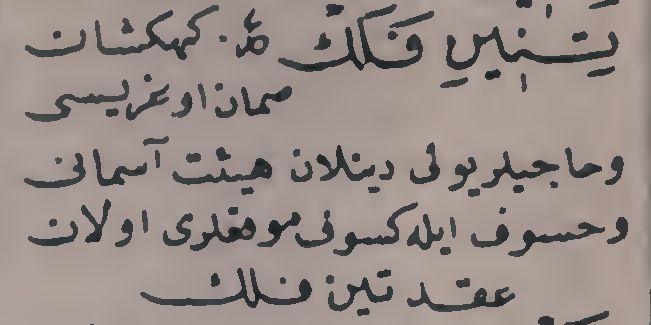 تِنّينِ فَلَكْ کهکشان
صمان اوغریسی
و حاجیلر یولی دینلان هیئت آسمانی
و خسوف ایله کسوفی موقعلری اولان
عقد تین فلك